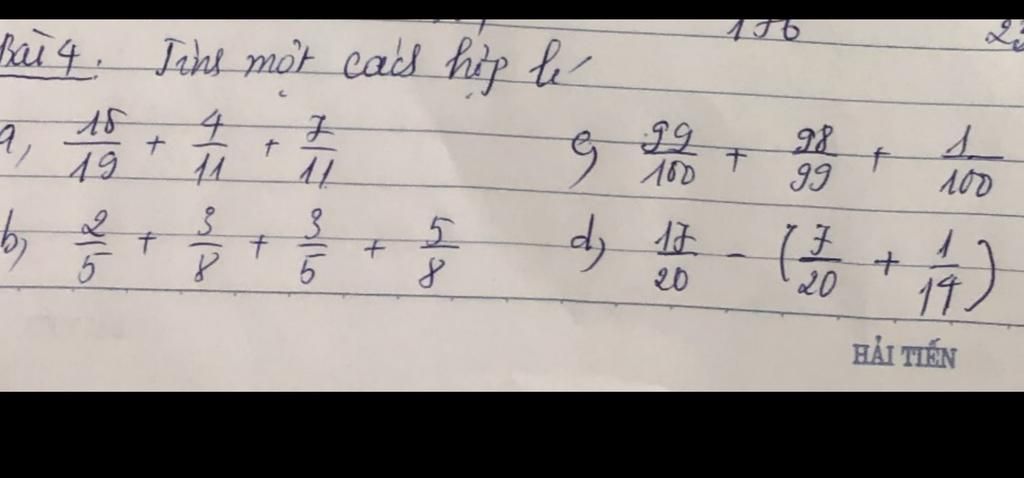 156 23
Bài 4. Tính một cách hợp lí
a, 15/19 + 4/11 + 7/11
c, 99/100 + 98/99 + 1/100
b, 2/5 + 3/8 + 3/5 + 5/8
d, 17/20 - (7/20 + 1/14)
HẢI TIẾN